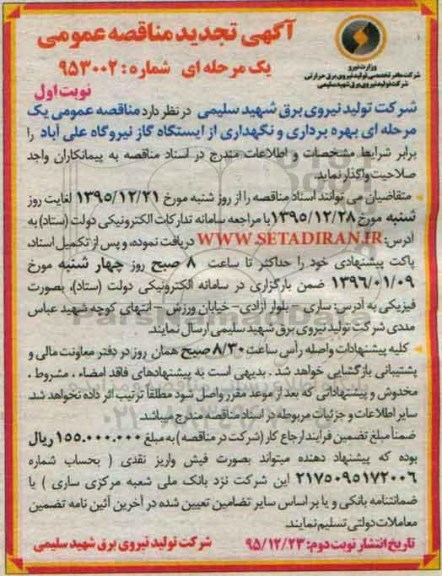 آگهی تجدید مناقصه عمومی
یک مرحله ای شماره: ۹۵۳۰۰۲
وزارت نیرو
شرکت مادر تخصصی تولید نیروی برق حرارتی
شرکت تولید نیروی برق شهید سلیمی
نوبت اول
شرکت تولید نیروی برق شهید سلیمی در نظر دارد مناقصه عمومی یک
مرحله ای بهره برداری و نگهداری از ایستگاه گاز نیروگاه علی آباد را
برابر شرایط مشخصات و اطلاعات مندرج در اسناد مناقصه به پیمانکاران واجد
صلاحیت واگذار نماید.
متقاضیان می توانند اسناد مناقصه را از روز شنبه مورخ ۱۳۹۵/۱۲/۲۱ لغایت روز
شنبه مورخ ۱۳۹۵/۱۲/۲۸ با مراجعه سامانه تدارکات الکترونیکی دولت (ستاد) به
آدرس: WWW.SETADIRAN.IR دریافت نموده، و پس از تکمیل اسناد،
پاکت پیشنهادی خود را حداکثر تا ساعت ۸ صبح روز چهار شنبه مورخ
۱۳۹۶/۰۱/۰۹ ضمن بارگزاری در سامانه الکترونیکی دولت (ستاد)، بصورت
فیزیکی به آدرس: ساری - بلوار آزادی - خیابان ورزش - انتهای کوچه شهید عباس
مددی شرکت تولید نیروی برق شهید سلیمی ارسال نمایند.
کلیه پیشنهادات واصله رأس ساعت ۸/۳۰ صبح همان روز در دفتر معاونت مالی و
پشتیبانی بازگشایی خواهد شد. بدیهی است به پیشنهادهای فاقد امضاء ، مشروط ،
مخدوش و پیشنهاداتی که بعد از موعد مقرر واصل شود مطلقا ترتیب اثر داده نخواهد شد.
سایر اطلاعات و جزئیات مربوطه در اسناد مناقصه مندرج میباشد.
ضمناً مبلغ تضمین فرآیند ارجاع کار (شرکت در مناقصه) به مبلغ ۱۵۵.۰۰۰.۰۰۰ ریال
بوده که پیشنهاد دهنده میتواند بصورت فیش واریز نقدی ( بحساب شماره
۲۱۷۵۰۹۵۱۷۲۰۰۶ این شرکت نزد بانک ملی شعبه مرکزی ساری ) یا
ضمانتنامه بانکی و یا بر اساس سایر تضامین تعیین شده در آخرین آئین نامه تضمین
معاملات دولتی تسلیم نمایند.
تاریخ انتشار نوبت دوم: ۹۵/۱۲/۲۳ شرکت تولید نیروی برق شهید سلیمی